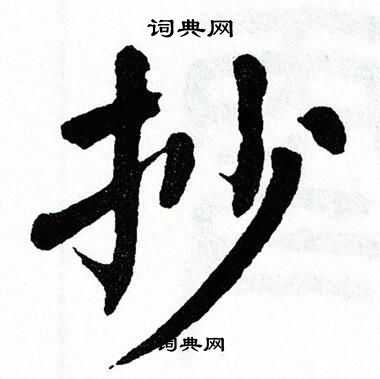 词典网
抄
词典网